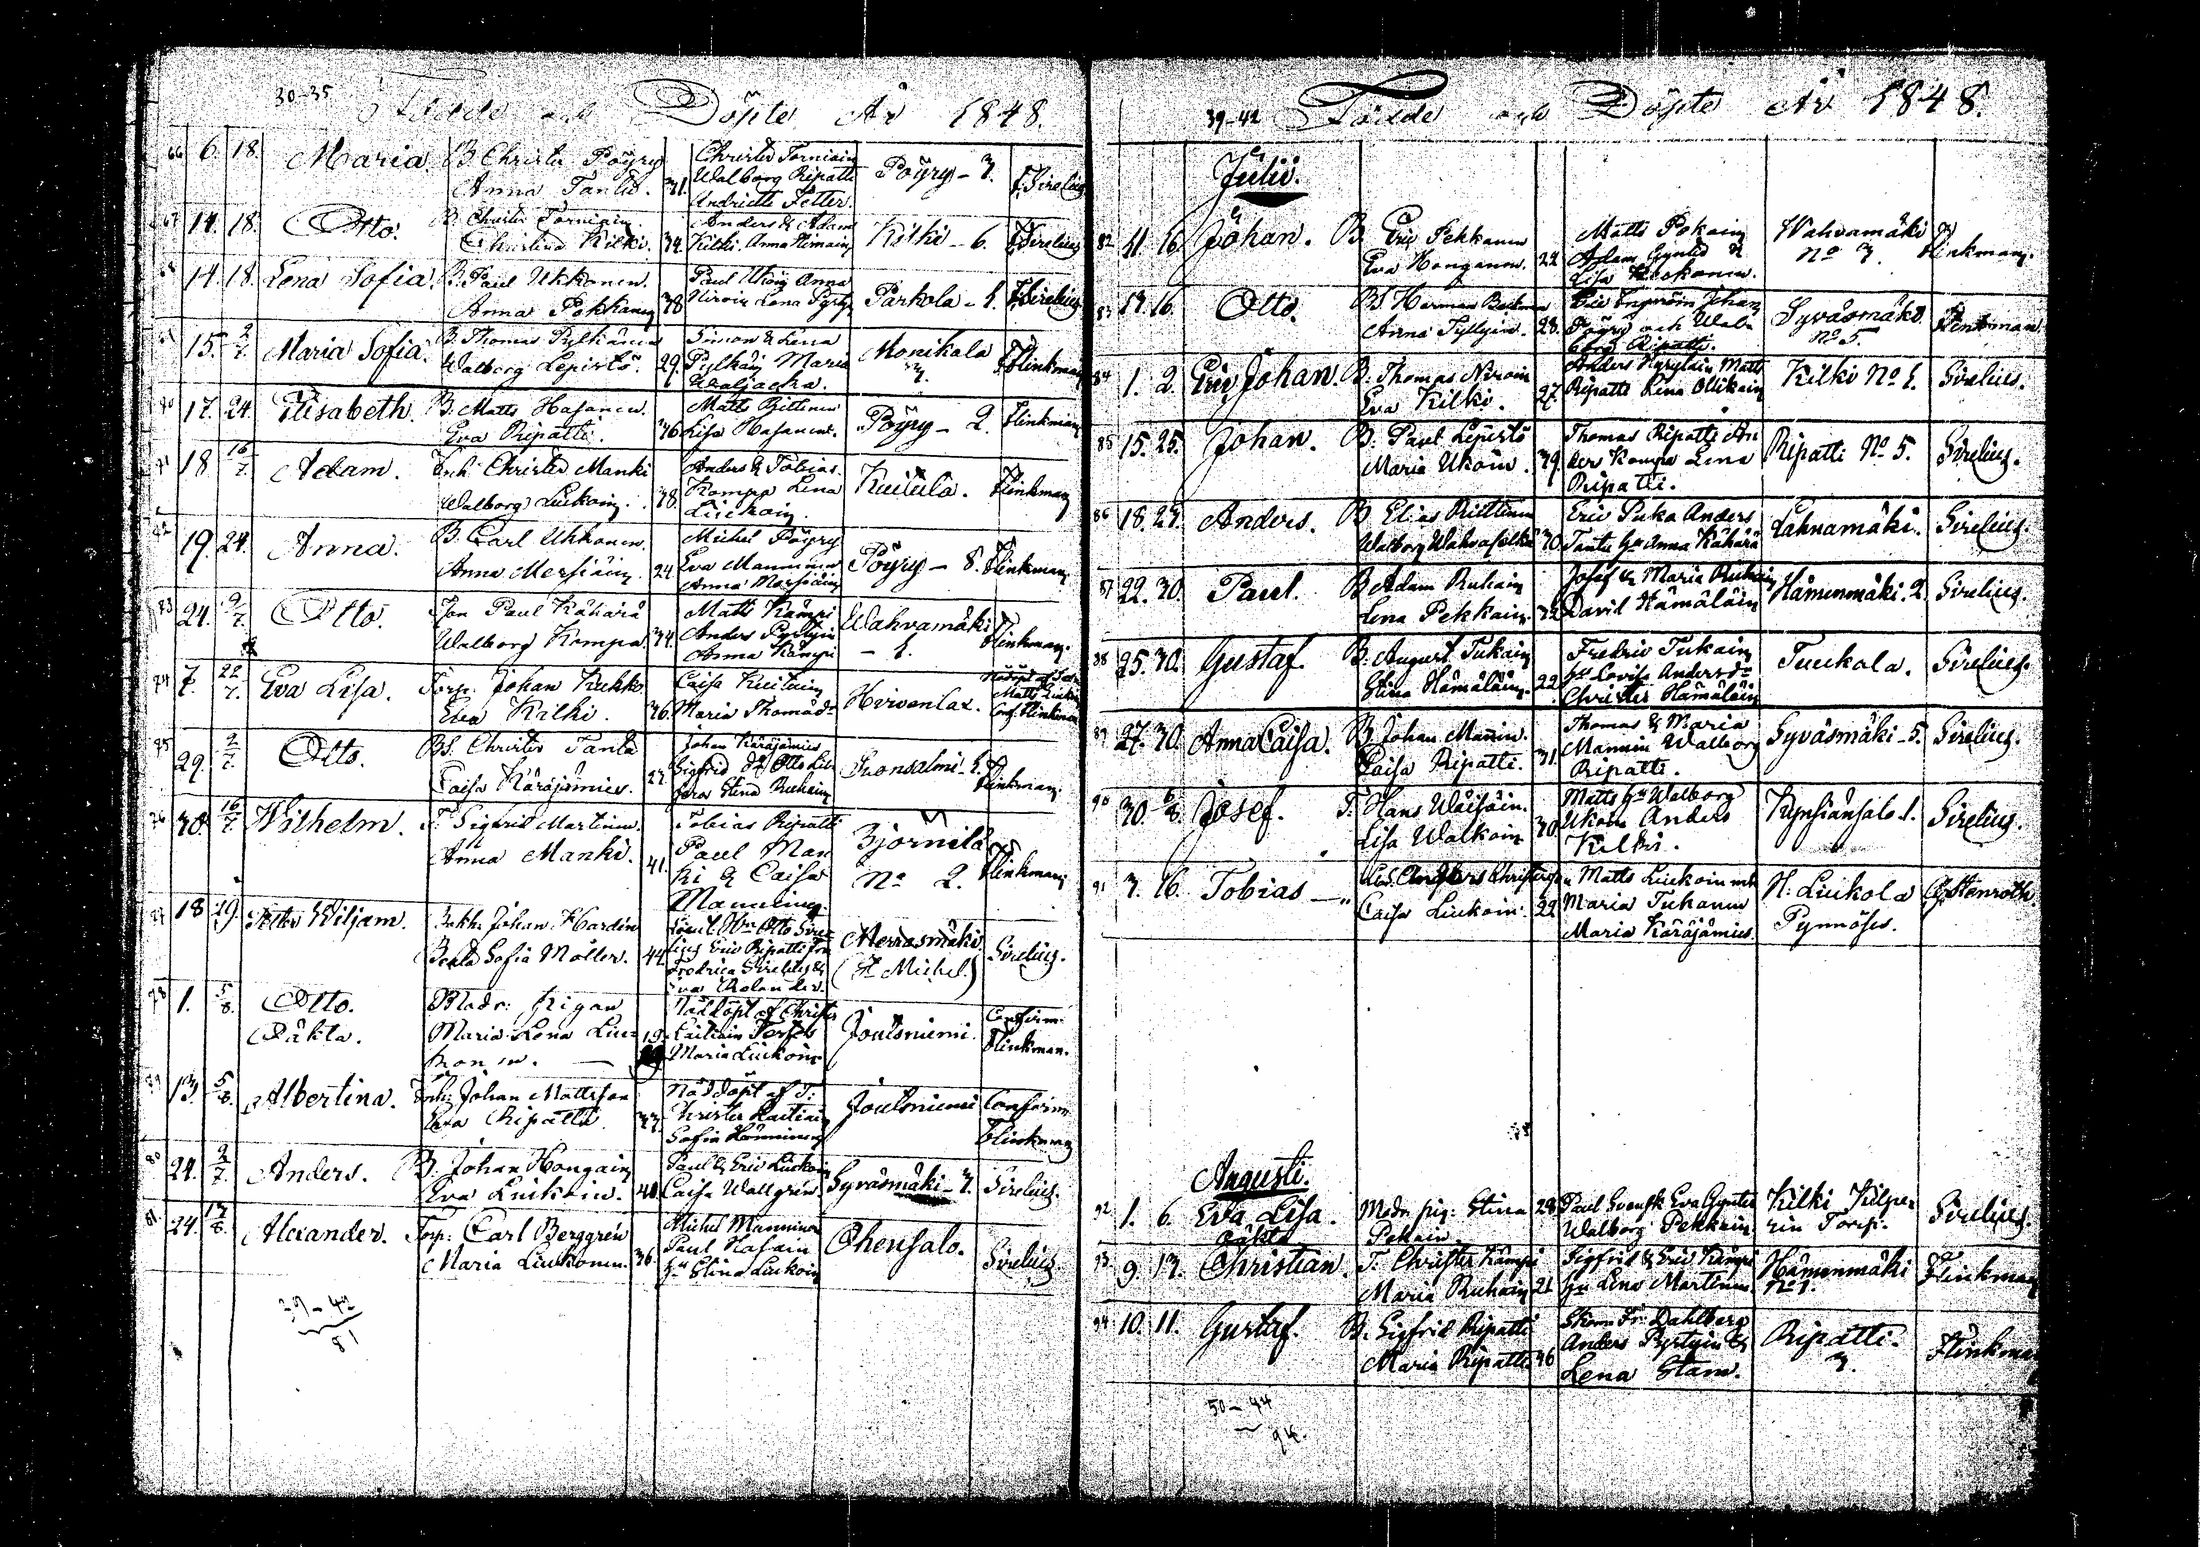 30-35
Födde och Döpte År 1848.
66 6. 18. Maria. B. Christer Pöyry
Anna Tanttu. 31.
Christer Torniain
Walborg Ripatti
Andriette Fetter.
Pöyry - 7. Sirelius
67 14. 18. Otto. B. Christer Torniain
Christina Kilki. 34.
Anders & Adam
Kilki. Anna Himain
Kilki - 6. Sirelius
68 14. 18. Lena Sofia. B. Paul Ukkonen.
Anna Pokkanen 38
Paul Ukoin Anna
Niroin Lena
Parkola - 1. Sirelius
69 15. 2/7. Maria Sofia. B. Thomas Pylkänen
Walborg Lepistö. 29.
Simon & Lena
Pylkäin Maria
Monikala
7. Flinkman
70 17. 24. Elisabeth. B. Matts Hasanen.
Eva Ripatti. 36
Matts Pittinen
Lisa Hasanen.
Pöyry - 2. Flinkman
71 18 16/7. Adam. Inh: Christer Manki
Walborg Liukoin. 38.
Anders & Tobias
Kompa Lena
Liukoin.
Kuitula. Flinkman
72 19. 24. Anna. B. Carl Ukkonen.
Anna Mersiäin. 24
Michel Pöyry
Eva Manninen
Anna Marsiäin
Pöyry - 8. Flinkman
73 24. 9/7. Otto. Paul Kähärä
Walborg Kompa. 34.
Matts Kämpi
Anders Pyrtyin
Anna Kämpi
Wahvamäki
- 1. Flinkman.
74 7. 22/7. Eva Lisa. Torp: Johan Kukko
Eva Kilki. 36.
Caisa Kuitnin
Maria Thomasdr
Hirvenlax. Nöddöpt af
Matts
Conf. Flinkman
75 29. 2/7. Otto. BS. Christer Tanttu
Caisa Käräjämies. 27.
Johan Käräjämies
Sigfrid & Otto
Stina Ruhain
Suonsalmi - 1. Flinkman.
76 30. 16/7. Wilhelm. T. Sigfrid Martinen.
Anna Manki. 41.
Tobias Ripatti
Paul Man
ki & Caisa
Manninen.
Björnilä
No 2. Flinkman
77 18 29/. Wiljam. Johan Hardin
Sofia Möller. 44.
Otto Sire
lius Eric Ripatti
Fredrica Sirelius &
Eva Molander.
Merrasmäki
(St Michel.) Sirelius.
78 1. 5/8. Otto.
Oäkta. Madr: pigan
Maria Lena Liu
konen. 19
Nöddöpt af Christer
Maria Liukoin
Joutsniemi. Confirm:
Flinkman.
79 13. 5/8. Albertina. Inh: Johan Mattsson
Eva Ripatti. 37.
Nöddöpt af T:
Christer
Sofia Hänninen
Joutsniemi Confirm:
Flinkman
80 24. 2/7. Anders. B. Johan Hongain
Eva Liukoin. 40.
Paul & Eric Liukoin
Caisa Wallgren
Syväsmäki - 7. Sirelius.
81 24. 17/8. Alexander. Torp: Carl Berggrén
Maria Liukonen. 36.
Michel Manninen
Paul Hasain
Hu Stina Liukoin
Ohensalo. Sirelius.
39-42
81
39-42 Födde och Döpte År 1848.
Julii.
82 11. 16. Johan. B. Eric Pekkanen
Eva Honganen. 22
Matts Pokain
Adam Gynter &
Lisa
Wahvamäki
No 7. Flinkman.
83 14. 16. Otto. BS Herman Backman
Anna Tyllyin. 28.
Johan
Pöyry och Wal-
borg Ripatti.
Syväsmäki
No 5. Flinkman
84 1. 2. Eric Johan. B. Thomas Niroin
Eva Kilki. 27.
Anders Kyrylain Matts
Ripatti Lena Ollikain
Kilki No 1. Sirelius.
85 15. 25. Johan. B. Paul Lepistö
Maria Ukoin. 39.
Thomas Ripatti An
der Kompa Lena
Ripatti.
Ripatti No 5. Sirelius.
86 18. 24. Anders. B. Elias Pittinen
Walborg 30.
Eric Puka Anders
Tanttu Hu Anna Kähärä
Lahnamäki. Sirelius.
87 22. 30. Paul. B. Adam Ruhain
Lena Pekkain. 32
Josef & Maria Ruhain
David Hämäläin
Hämenmäki. 2. Sirelius.
88 25. 30. Gustaf. B. August Tukain
Stina Hämäläin. 22.
Fredric Tukain
Hu Lovisa Andersdr
Christer Hämäläin
Tuukala. Sirelius.
89 27. 30. Anna Caisa. B. Johan Mannin.
Caisa Ripatti. 31.
Thomas & Maria
Mannin Walborg
Ripatti.
Syväsmäki - 5. Sirelius.
90 30. 6/8. Josef. T. Hans Wäisäin.
Lisa Walkoin 30.
Matts Hu Walborg
Ukoin Anders
Kilki.
Kynsiänsalo 1. Sirelius.
91 7. 16. Tobias
Caisa Liukoin. 22
Matts Liukoin
Maria Tukanen
Maria Käräjämies.
N: Liukola
Pynnöses. Stenroth.
Augusti.
92 1. 6. Eva Lisa.
Oäkta Madr: pig: Stina
Pekain. 28.
Paul Svensk Eva Gynter
Walborg Pekkain.
Kilki
Torp. Sirelius.
93 9. 13. Christian. T. Christer Kämpi
Maria Ruhain 21
Sigfrid & Eric Kämpi
Hu Lena Martinen.
Hämenmäki
No 1. Flinkman
94 10. 11. Gustaf. B. Sigfrid Ripatti
Maria Ripatti 36
Skom: Fr: Dahlberg
Anders Pyrtyin &
Lena Stam.
Ripatti.
7. Flinkman
50-44
94.